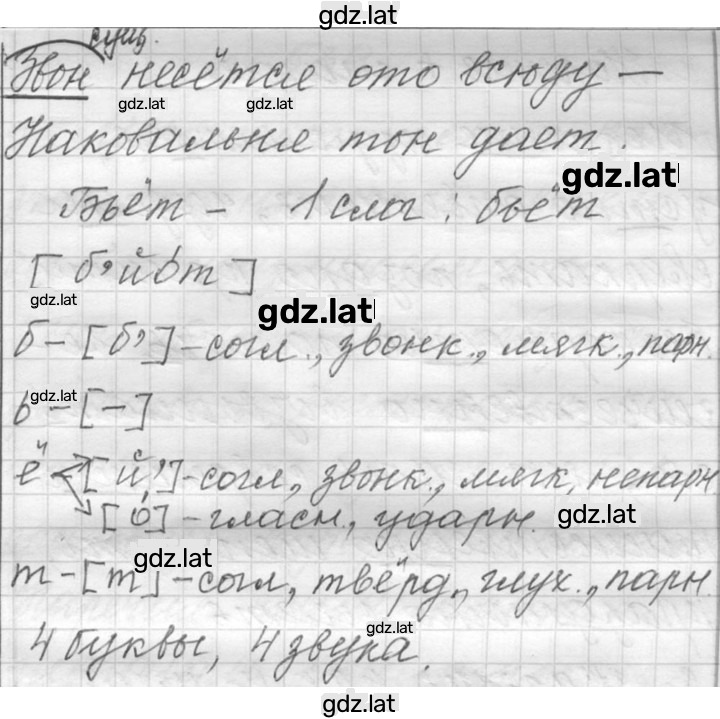 gdz.lat
сущ.
Звон несётся ото всюду —
gdz.lat gdz.lat
Наковальня тон дает.
gdz.lat
Бьёт - 1 слог : бьёт
[б,йо́т]
gdz.lat
gdz.lat
б - [б,] - согл., звонк., мягк., парн.
gdz.lat
ь - [-]
ё [й,] - согл., звонк., мягк, непарн
[о́] - гласн., ударн.
gdz.lat
gdz.lat
т - [т] - согл., твёрд., глух., парн.
gdz.lat
4 буквы, 4 звука.
gdz.lat